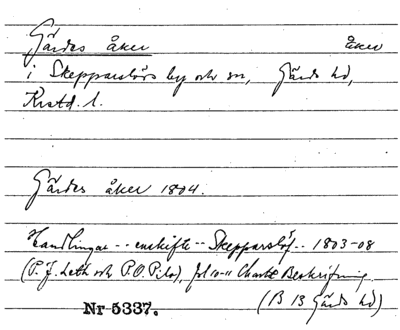 Gärdes åker åker
i Skepparslövs by och sn, Gärds hd,
Krstd. l.
Gärdes åker 1804.
Handlingar -- enskifte -- Skepparslöf -- 1803-08
(P. J. Leth och P. O. Pilo), fol 10-11 Charte Beskrifning.
(B 13 Gärds hd)
Nr 5337.